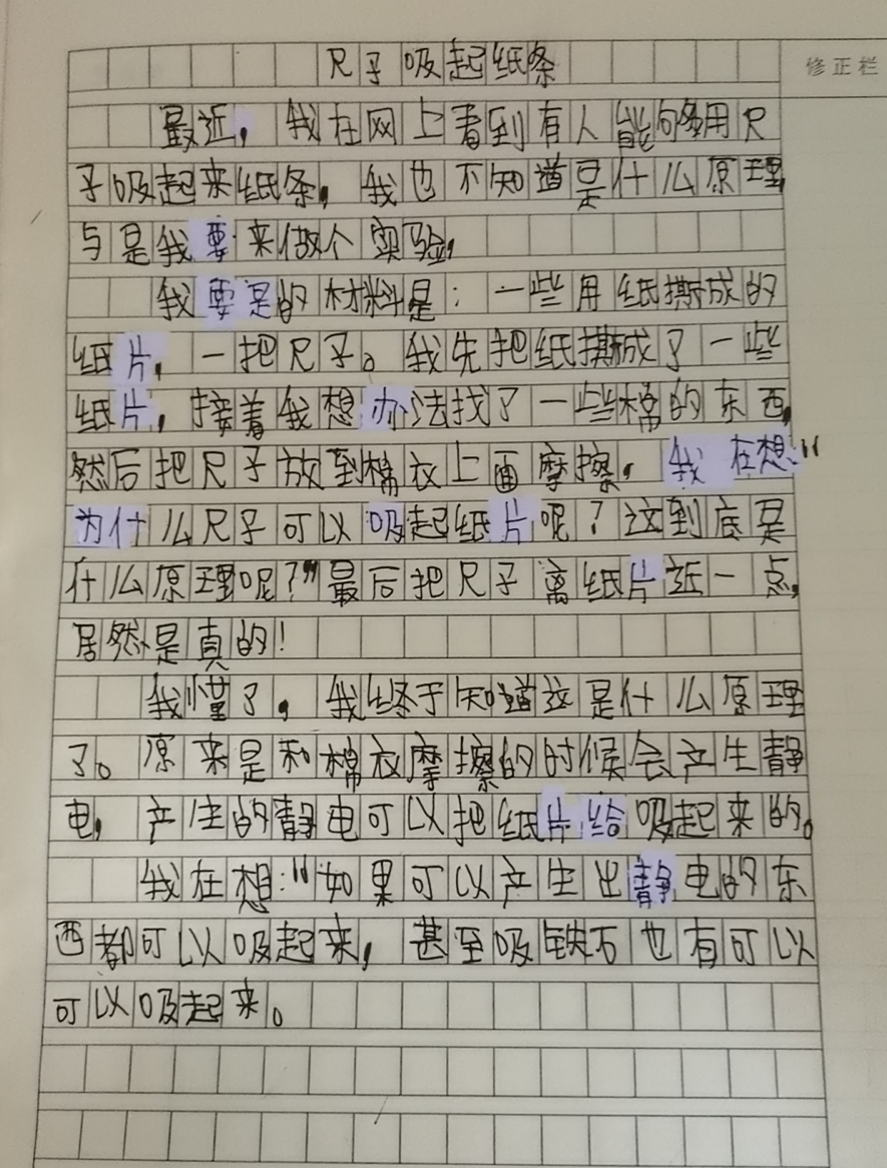 尺子吸起纸条
修正栏
最近，我在网上看到有人能够用尺
子吸起来纸条，我也不知道是什么原理，
与是我要来做个实验，
我要是的材料是：一些用纸撕成的
纸片，一把尺子。我先把纸撕成了一些
纸片，接着我想办法找了一些棉的东西，
然后把尺子放到棉衣上面摩擦，我在想“
为什么尺子可以吸起纸片呢？这到底是
什么原理呢？”最后把尺子离纸片近一点，
居然是真的！
我懂了，我终于知道这是什么原理
了。原来是和棉衣摩擦的时候会产生静
电，产生的静电可以把纸片给吸起来的。
我在想：“如果可以产生出静电的东
西都可以吸起来，甚至吸铁石也有可以
可以吸起来。